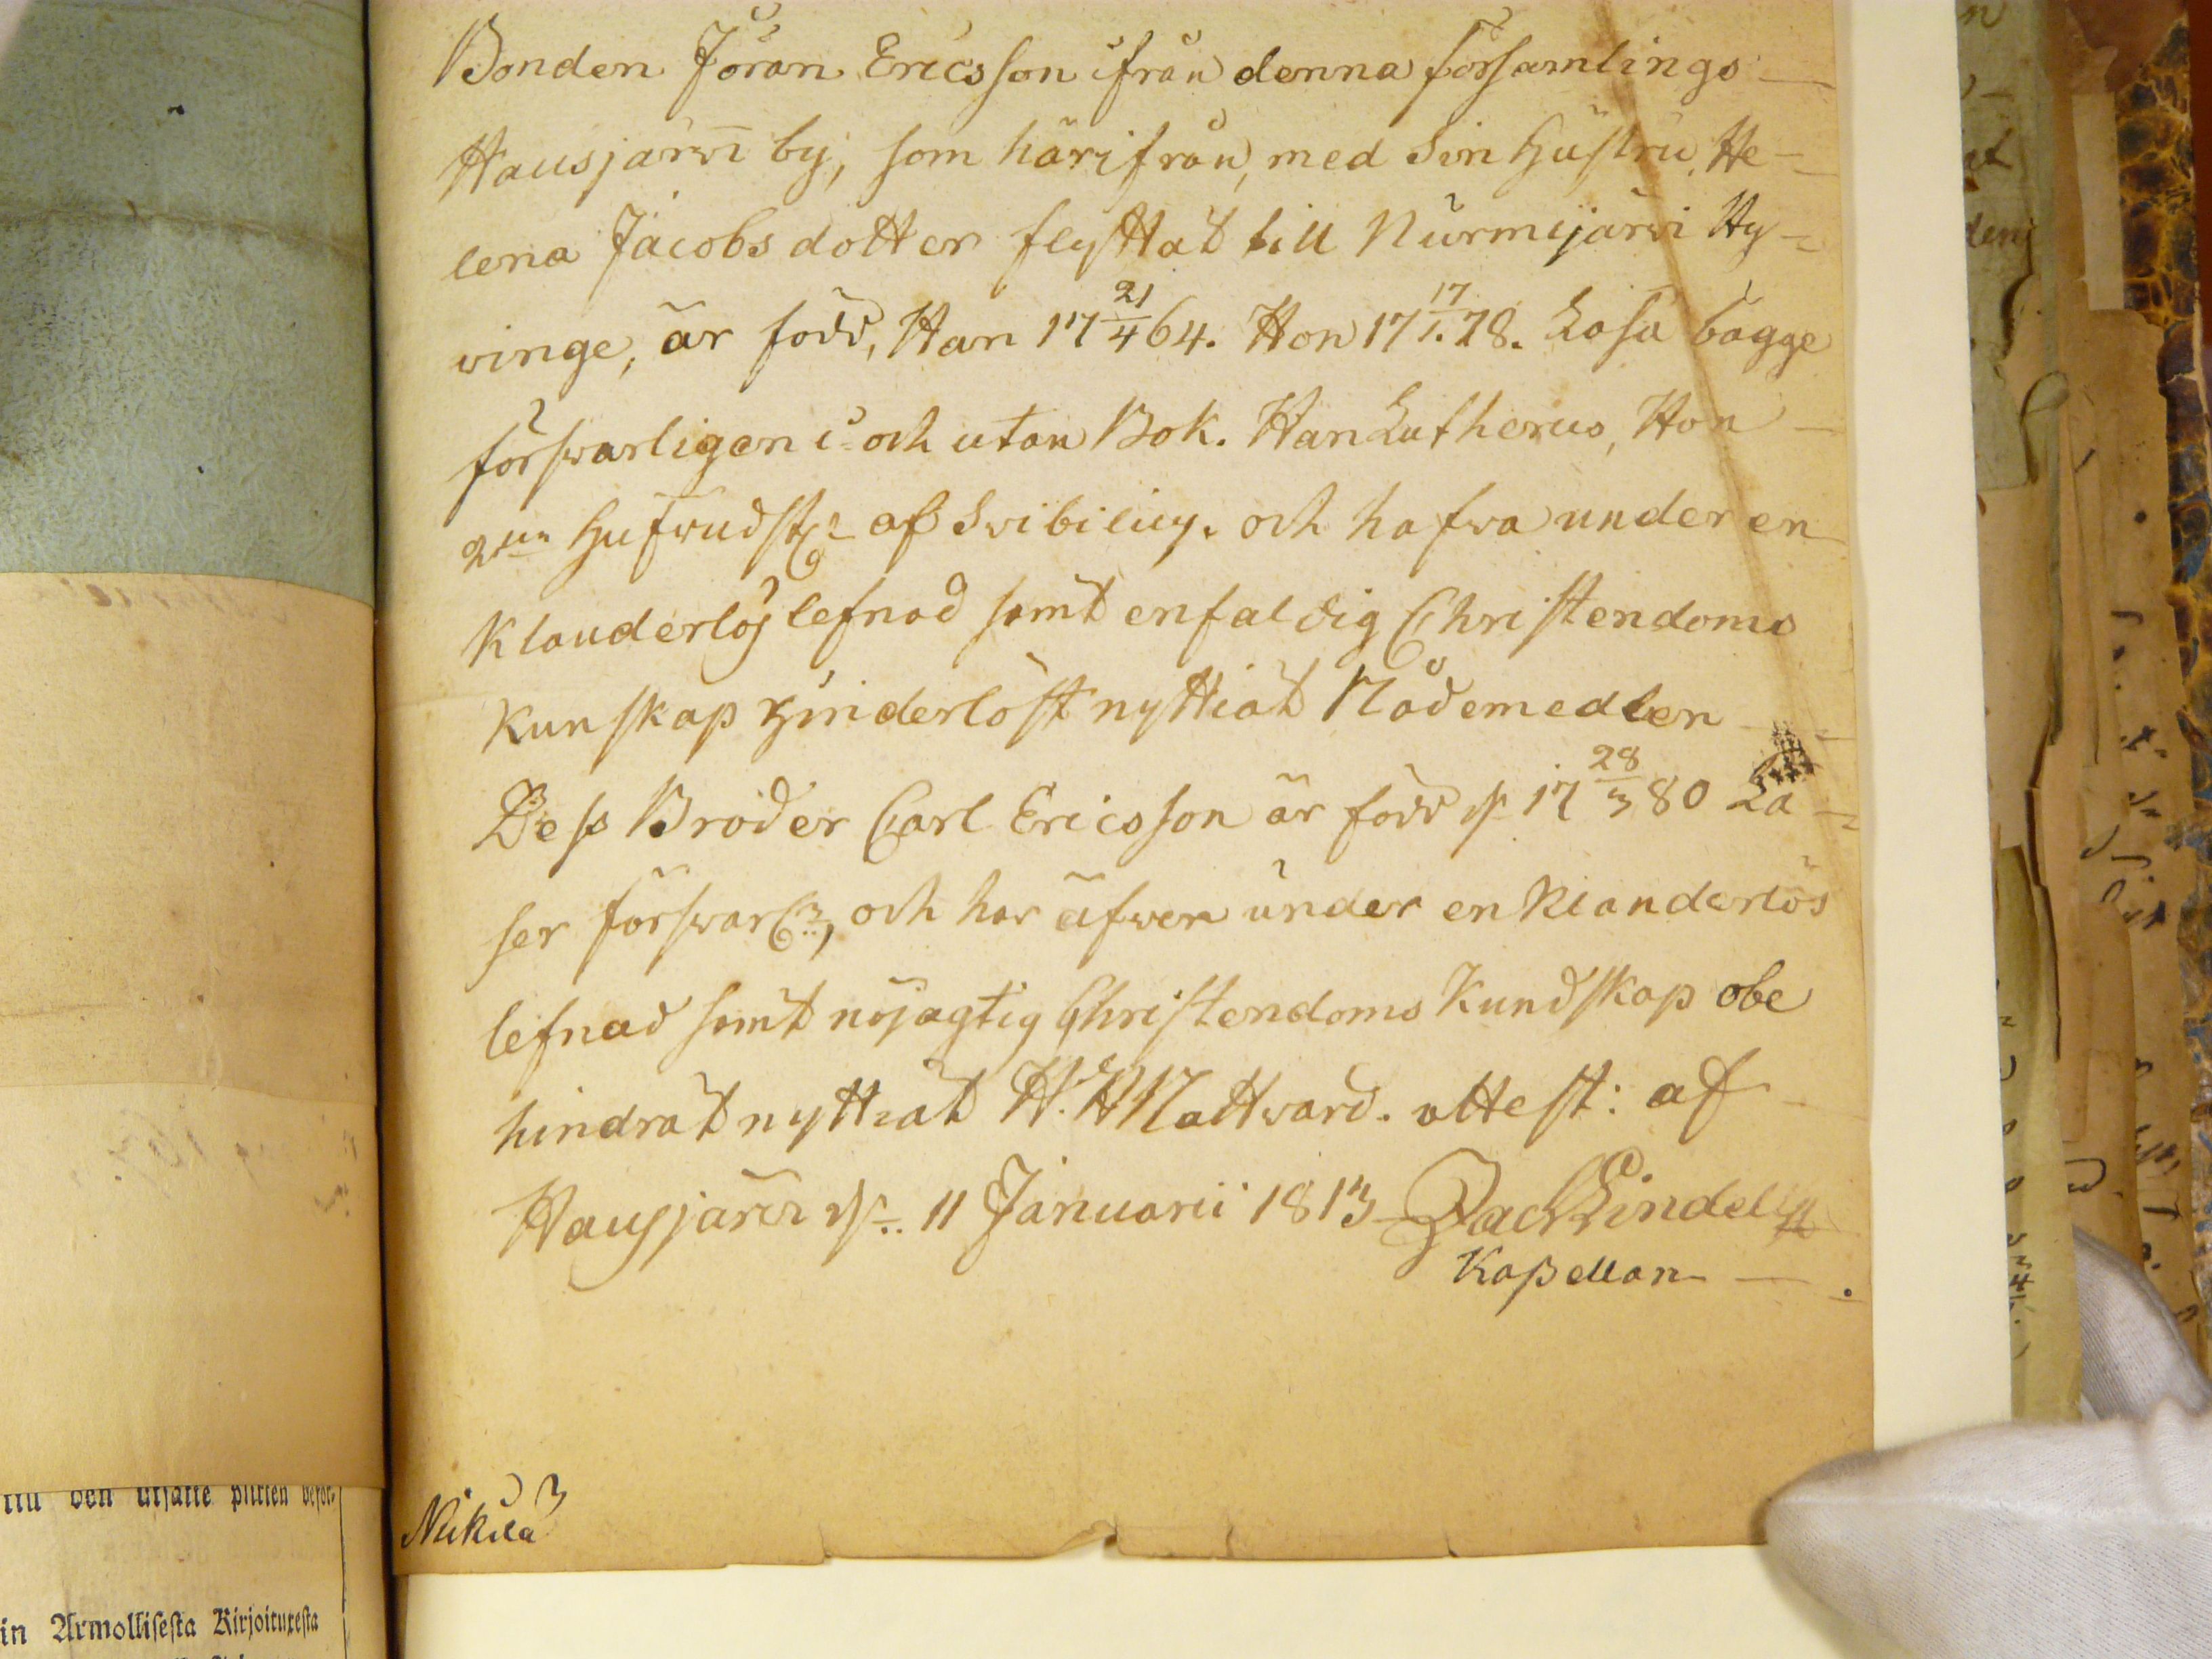 Bonden Jöran Ericsson ifrån denna församlings
Hausjärvi by, som härifrån, med Sin Hustru, He-
lena Jacobsdotter flyttat till Nurmijärvi Hy-
vinge, är född, Han 17 21/4 64. Hon 17 17/1. 78. Läsa bägge
försvarligen i- och utan Bok. Han Lutherus, Hon
2ne Hufvudst: af Svibilii. och hafva under en
Klanderlös lefnad samt enfaldig Christendoms
Kunskap hinderlöst nyttiat Nådemedlen
Dess Broder Carl Ericsson är född d. 17 28/3 80 Lä-
ser försvarl:n, och har äfven under en klanderlös
lefnad samt nöjagtig Christendoms Kundskap obe
hindrat nyttiat H. H. Nattvard. attest: af
Hausjärvi d. 11 Januarii 1813 Zach Lindell
Kapellan
Nikila
till den utsatte plikten beför-
in Armollisesta Kirjoituxesta